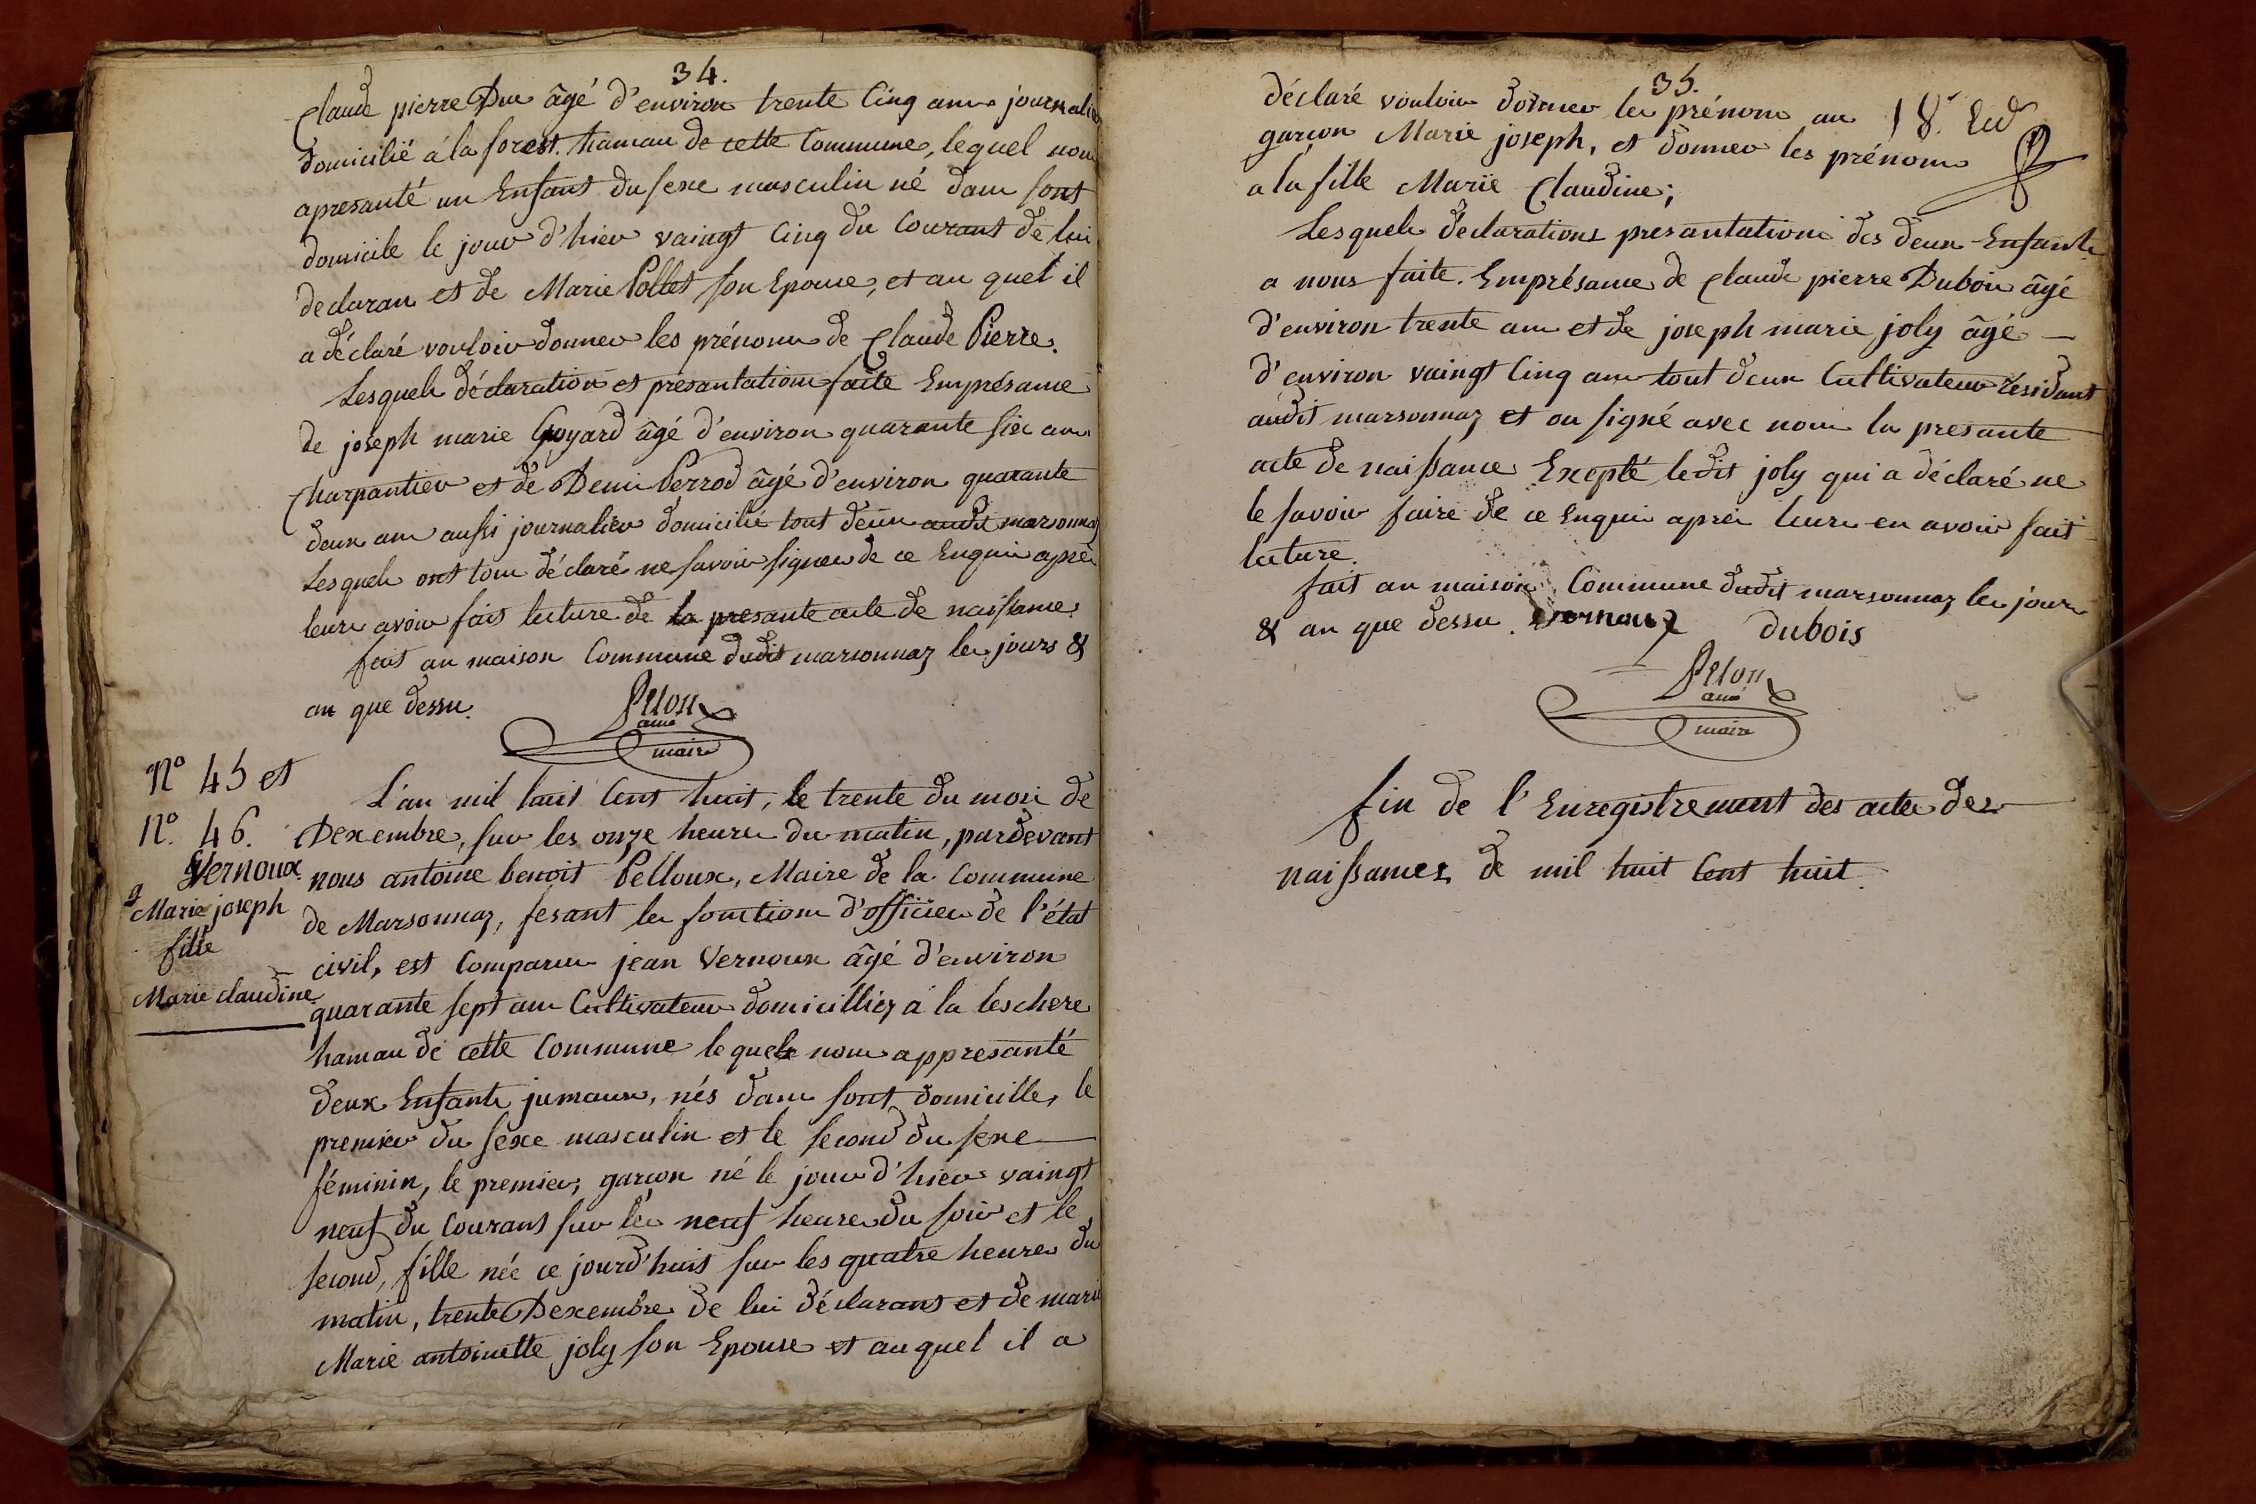 34.
Claude pierre Duc âgé d'environ trente Cinq ans journalier
domicilié á la forest hamau de cette Commune, lequel nous
apresanté un Enfant du sexe masculin né dans sont
domicile le jour d'hier vaingt Cinq du Courant de lui
declaran et de Marie Pollet son Epouse, et au quel il
a déclaré vouloir donner les prénoms de Claude Pierre.
Lesquels déclaration et presantations faite Emprésance
de joseph marie Goyard âgé d'environ quarante six ans
Charpantier et de Denis Perrod âgé d'environ quarante
deux ans aussi journalier domicilié tout deux audit marsonnaz
Lesquels ont tous déclaré ne savoir signer de ce Enquis aprés
leurs avoir fais lecture de la presante acte de naissance.
fait au maison Commune dudit marsonnaz les jours &
an que dessu.
Pelou
amé
maire
N° 45 et
N°. 46.
Vernoux
g
Marie joseph
fille
Marie claudine
L'an mil huit Cent huit, le trente du mois de
Dexembre, sur les onze heures du matin, pardevant
nous antoine benoit Pelloux, Maire de la Commune
de Marsonnaz, fesant les fonctions d'officier de l'état
civil, est Comparu jean Vernoux âgé d'environ
quarante sept ans Cultivateur domicilliez á la leschere
hamau de cette Commune lequels nous appresanté
deux Enfants jumaux, nés dans sont domicille, le
premier du sexe masculin et le second du sexe
féminin, le premier, garçon né le jour d'hier vaingt
neuf du Courant sur les neuf heures du soir et le
second, fille née ce jourd'huis sur les quatre heures du
matin, trente Dexembre de lui déclarant et de marie
Marie antoinette joly son Epouse et auquel il a
35.
18.
déclaré vouloir donner les prénoms au
garcon Marie joseph, et donner les prénoms
a la fille Marie Claudine;
Lesquels déclarations presantations des deux Enfants
a nous faite. Emprésance de Claude pierre Dubois âgé
d'environ trente ans et de joseph marie joly âgé
d'environ vaingt Cinq ans tout deux Cultivateur résidant
audit marsonnaz et on signé avec nous la presante
acte de naissance Exepté ledit joly qui a déclaré ne
le savoir faire de ce enquis aprés leurs en avoir fait
lecture.
fait au maison Commune dudit marsonnaz les jours
& an que dessu. Vernoux dubois
Pelou
amé
maire
fin de l'Enregistrement des actes des
naissances de mil huit Cent huit.